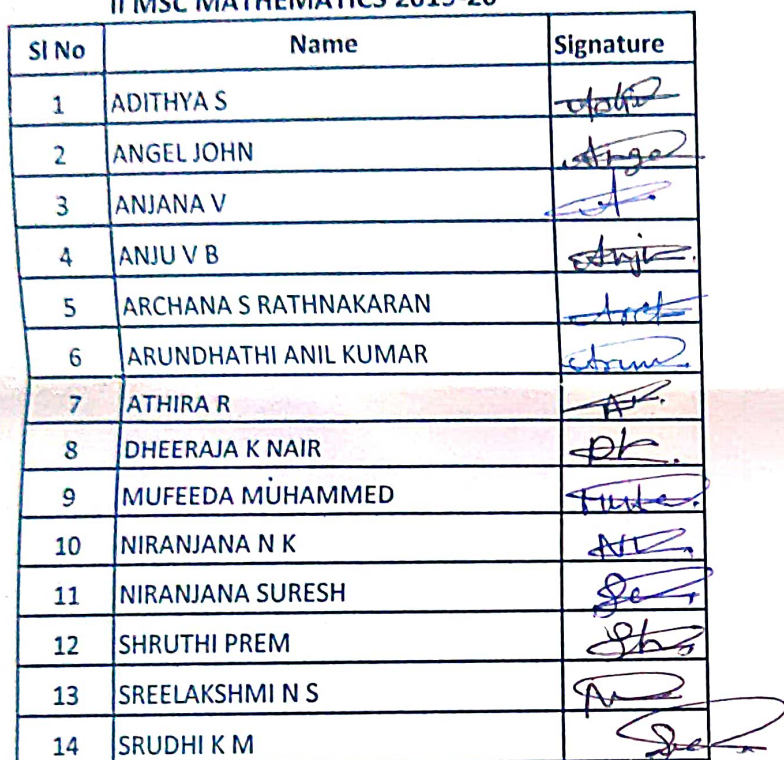 II MSC MATHEMATICS 2019-20
Sl No Name Signature
1 ADITHYA S
2 ANGEL JOHN Ange
3 ANJANA V A
4 ANJU V B Anju
5 ARCHANA S RATHNAKARAN
6 ARUNDHATHI ANIL KUMAR
7 ATHIRA R
8 DHEERAJA K NAIR
9 MUFEEDA MUHAMMED
10 NIRANJANA N K
11 NIRANJANA SURESH
12 SHRUTHI PREM
13 SREELAKSHMI N S
14 SRUDHI K M